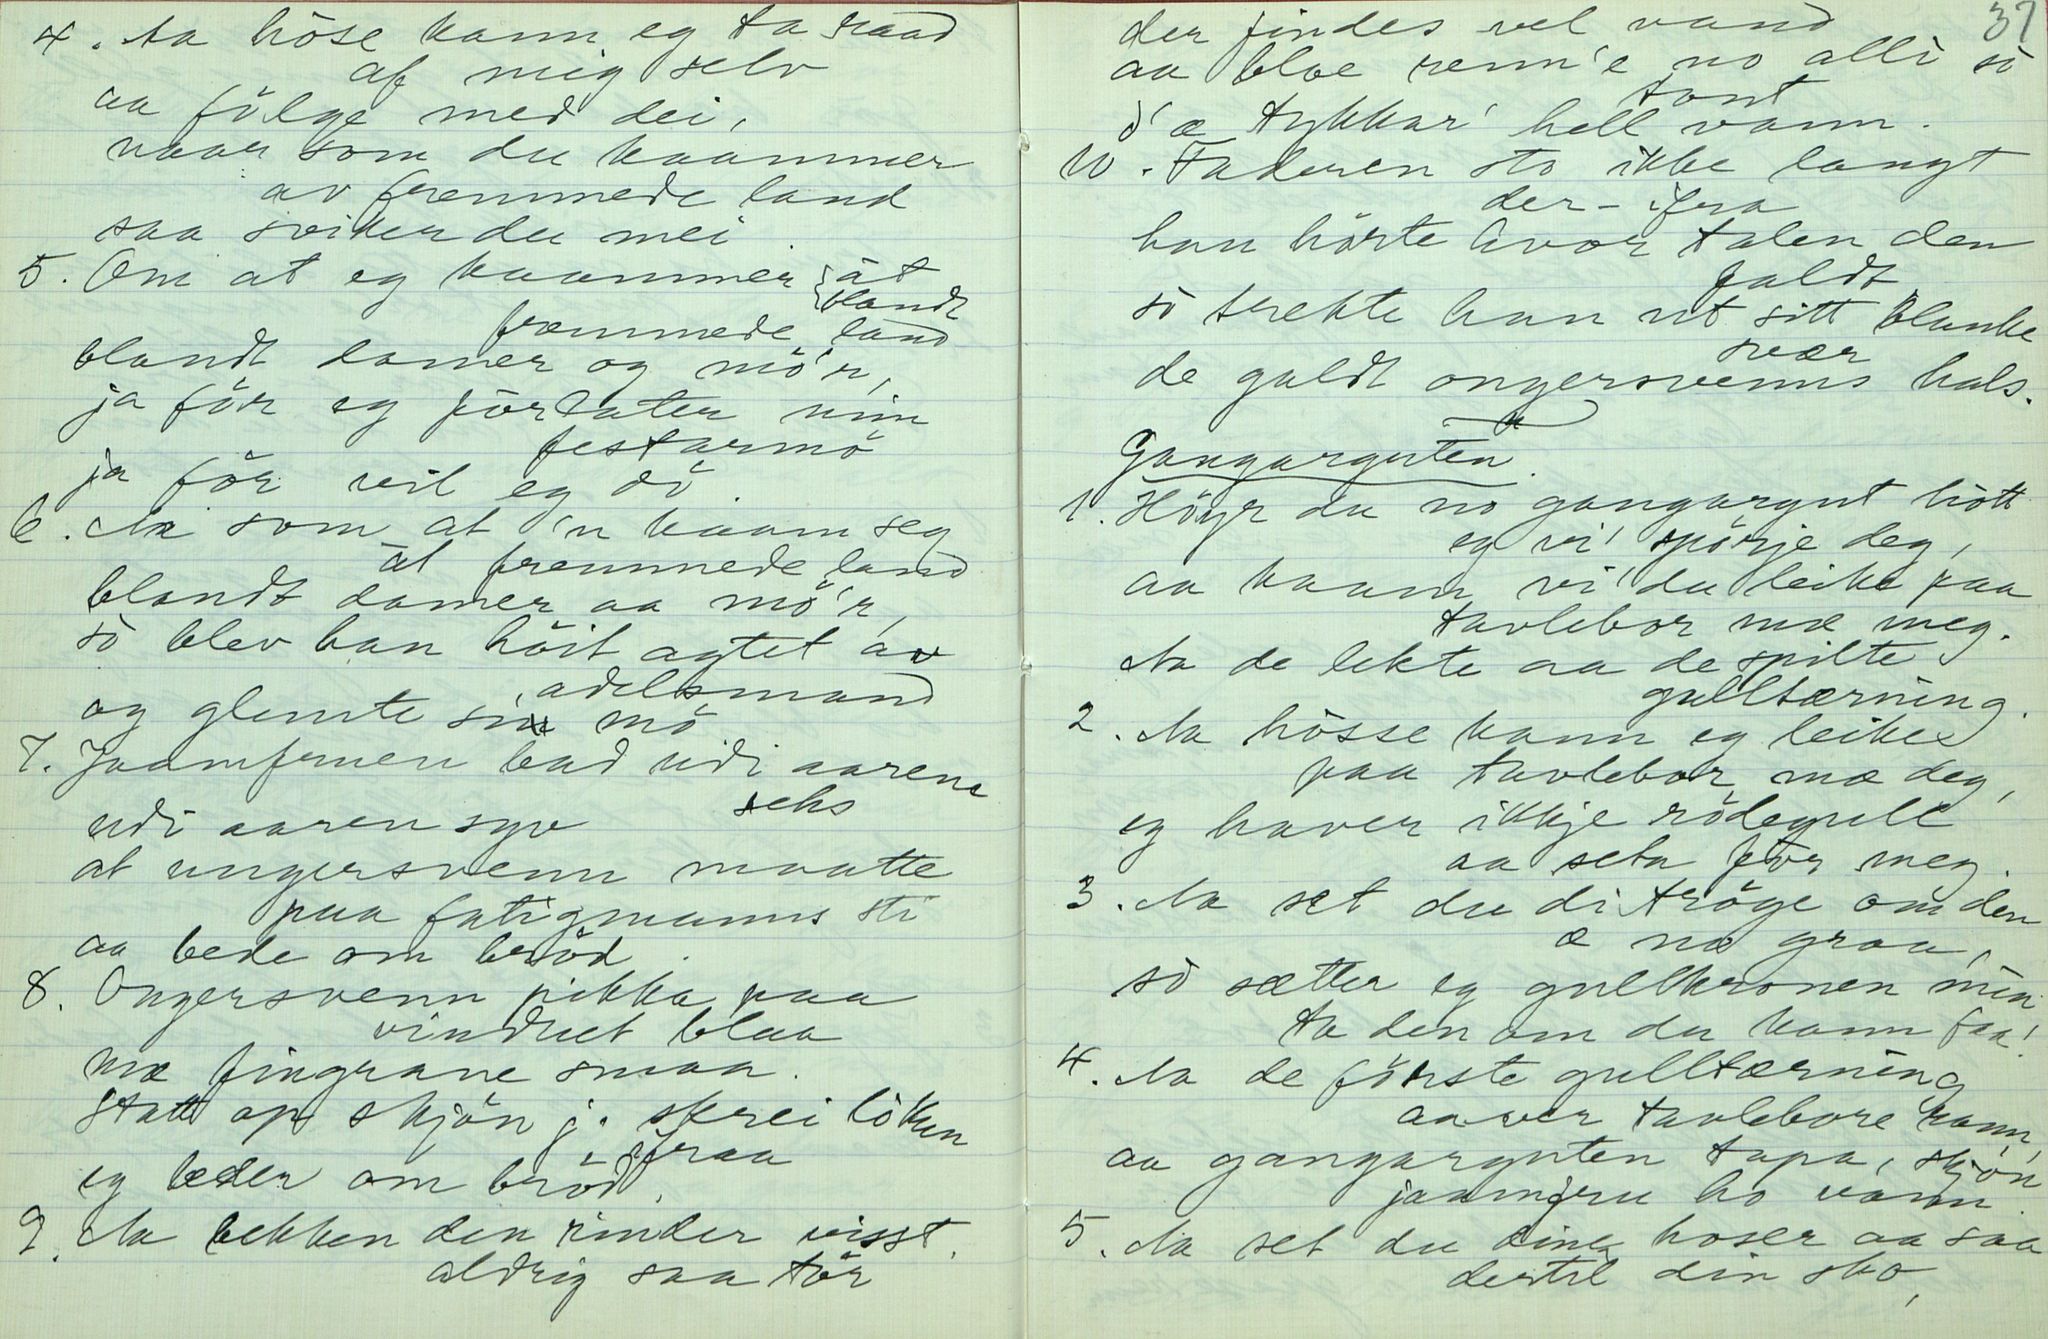 4. Aa höse kann eg ta raad
af mig selv
aa fölge med dei,
naar som du kaammer
av fremmede land
saa sviker du mei.
5. Om at eg kaammer { åt
blandt
fremmede land
blandt damer og mö'r,
ja för eg forlater min
festarmö
ja för vil eg dö.
6. Aa som at 'n kaam seg
åt fremmede land
blandt damer aa mö'r,
så blev han höit agtet av
adelsmand
og glemte sin mö.
7. Jaamfruen bad udi aarene
seks
udi aaren syv
at ungersvenn maatte
paa fatigmanns sti
aa bede om bröd.
8. Ongersvenn pikka paa
vinduet blaa
mæ fingrane smaa.
Statt op skjön j. skrei lökun
ifraa
eg beder om bröd.
9. Aa bekken den rinder visst
aldrig saa tör
37
der findes vel vand
aa bloe renn'e no alli så
tont
d'æ tykkar' hell vann.
10. Faderen sto ikke langt
der-ifra
han hörte hvor talen den
faldt
så trekte han ut sitt blanke
svær
de galdt ongersvenns hals.
Gangarguten.
1. Höyr du no gangargut hått
eg vi' spörje deg,
aa kaam, vi' du leike paa
tavlebor mæ meg.
Aa de lekte aa de spilte
gulltærning.
2. Aa hösse kann eg leike
paa tavlebor mæ deg,
eg haver ikkje rödegull
aa seta för meg.
3. Aa set du di tröge om den
æ no graa,
så sætter eg gullkronen min
ta den om du kann faa!
4. Aa de förste gulltærning
aaver tavlebore rann,
aa gangarguten tapa, skjön
jaamfru ho vann.
5. Aa set du dine hoser aa saa
dertil din sko,